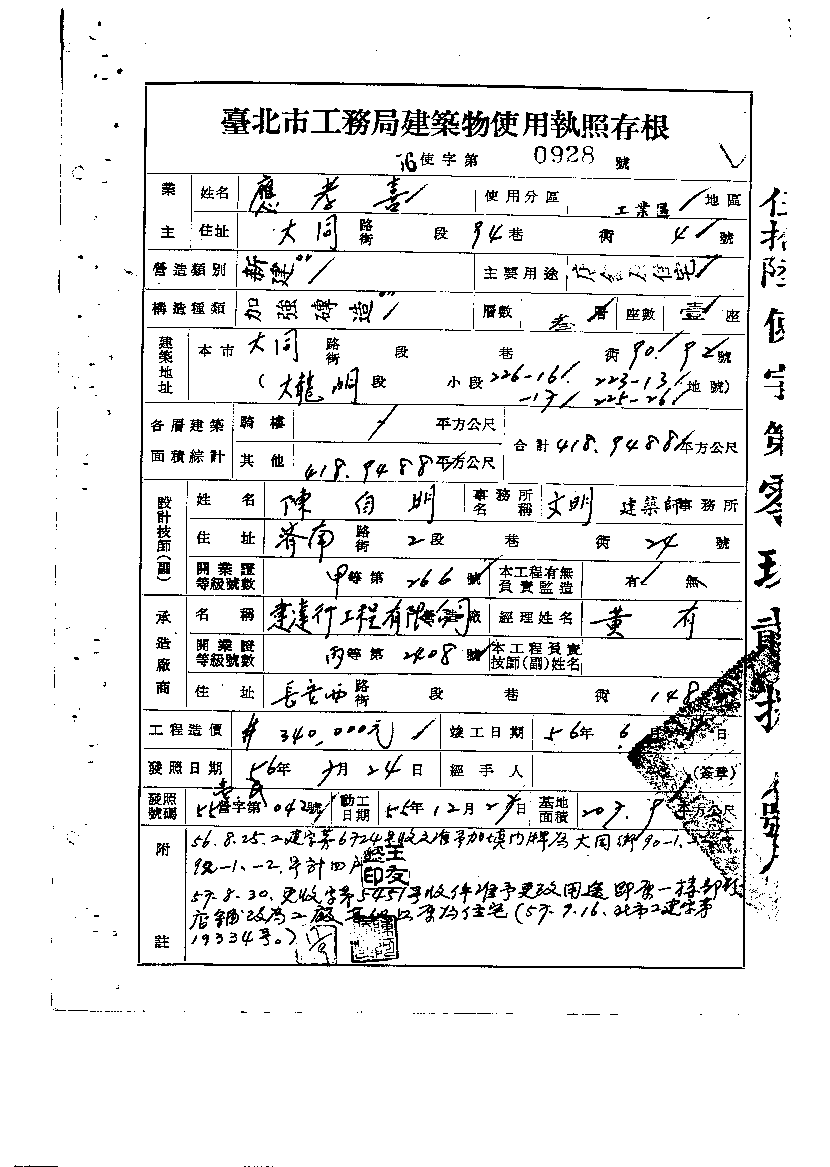 臺北市工務局建築物使用執照存根
56使字第 0928 號
業主 姓名 應孝喜 使用分區 工業區 地區
住址 大同 路街 段 94巷 衖 4 號
營造類別 新建 主要用途 店舖及住宅
構造種類 加強磚造 層數 叁層 座數 壹座
建築地址 本市 大同 路街 段 巷 衖 90/92號
(大龍峒段 小段 226-16 223-13 地號)
-17 225-26
各層建築面積綜計 騎樓 / 平方公尺 合計 418.9488 平方公尺
其他 418.9488 平方公尺
設計技師(副) 姓名 陳 明 事務所名稱 文明 建築師事務所
住址 濟南 路街 2段 巷 衖 24 號
開業證等級號數 甲等第 266 號 本工程有無負責監造 有 無
承造廠商 名稱 建達行工程有限公司 營造廠 經理姓名 黃有
開業證等級號數 丙等第 2408 號 本工程負責技師(副)姓名
住址 長安西 路街 段 巷 衖 148
工程造價 # 340,000元 竣工日期 56年 6月 日
發照日期 56年 月 24日 經手人 (簽章)
發照號碼 55 營字第 042 號 動工日期 55年12月2 日 基地面積 207.9 平方公尺
附註 56.8.25.工建字第6724號收文准予加填門牌為大同街90-1.
92-1.-2.號計四戶
57.8.30.更收字第5451號收件准予更改用途即原一樓部份
店舖改為工廠其他仍原為住宅(57.9.16.北市工建字第
19334號。)
伍拾陸使字第零玖貳捌號